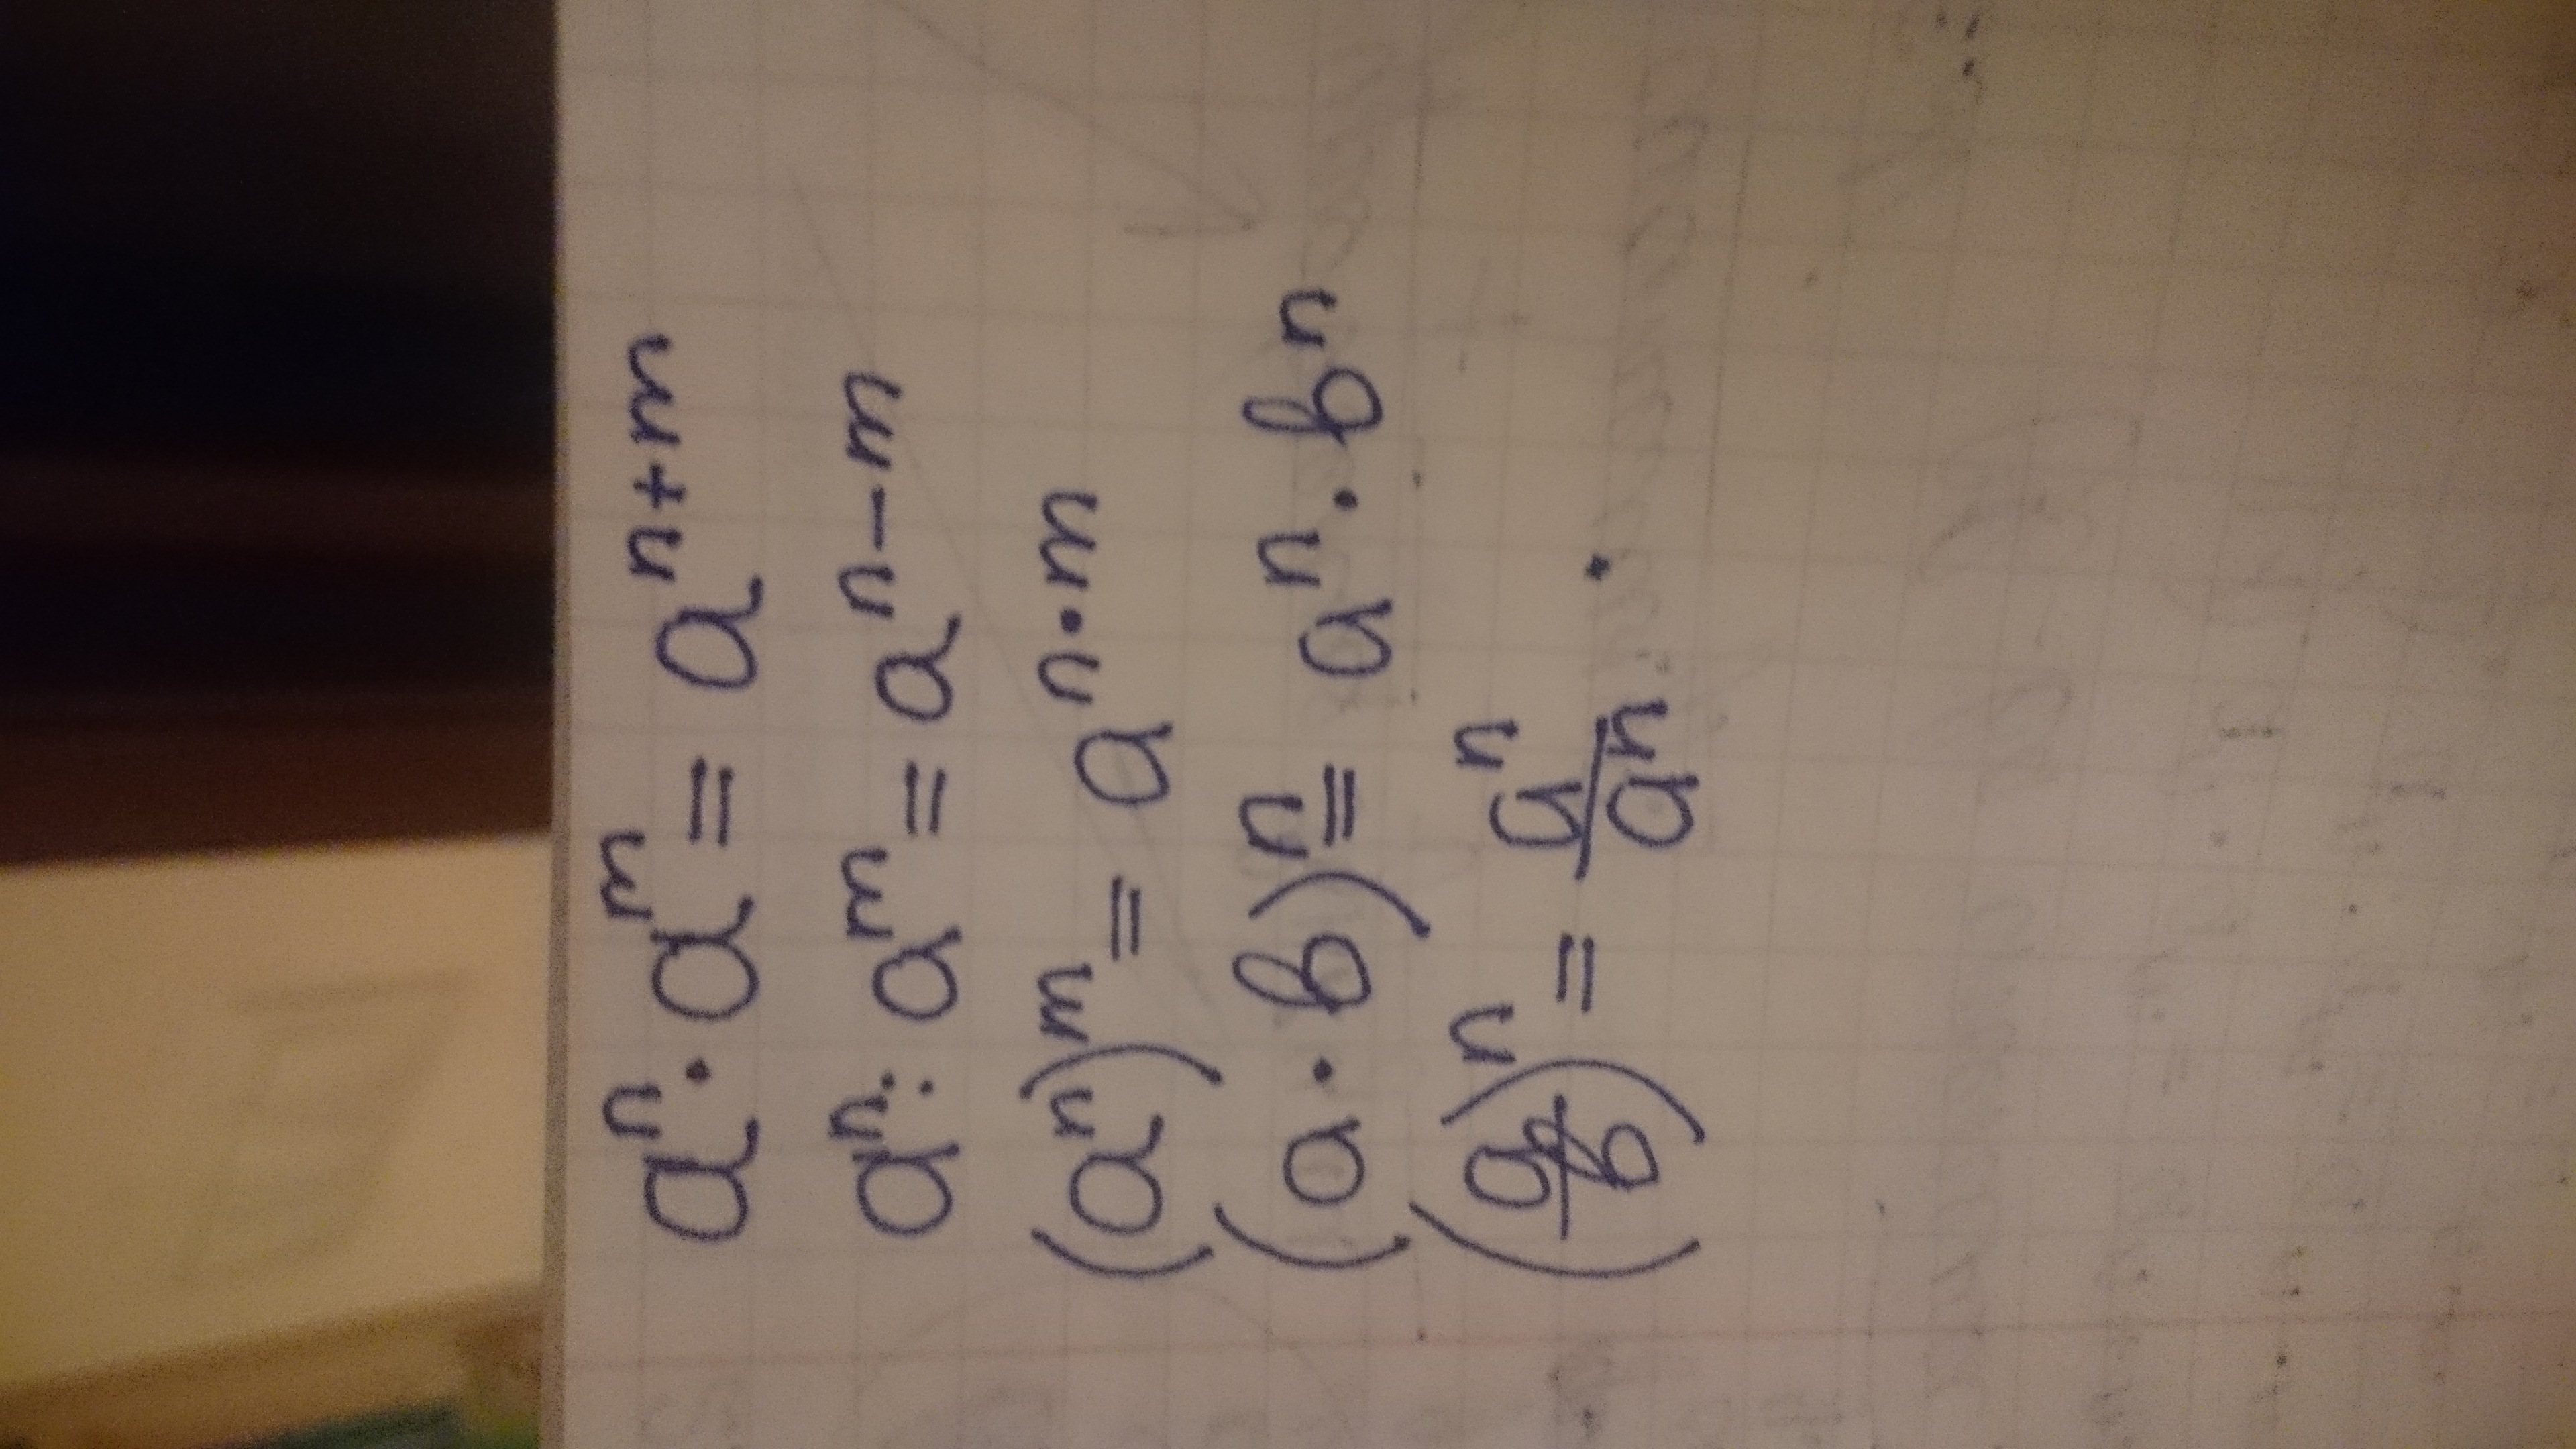 aⁿ · aᵐ = aⁿ⁺ᵐ
aⁿ : aᵐ = aⁿ⁻ᵐ
(aⁿ)ᵐ = aⁿ˙ᵐ
(a · b)ⁿ = aⁿ · bⁿ
(a/b)ⁿ = aⁿ/aⁿ